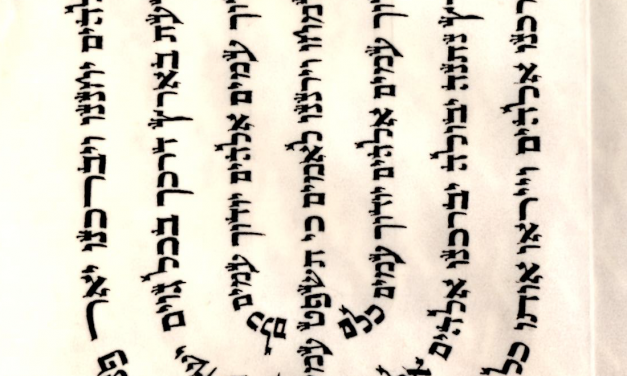 להים יחננו ויברכנו יאר פנ
עת בארץ דרכך בכל גוים
דוך עמים אלהים יודוך עמים כלם
מחו וירננו לאמים כי תשפט עמי
דוך עמים אלהים יודוך עמים כלם
רץ נתנה יבולה יברכנו אלהים
רכנו אלהים וייראו אותו כל